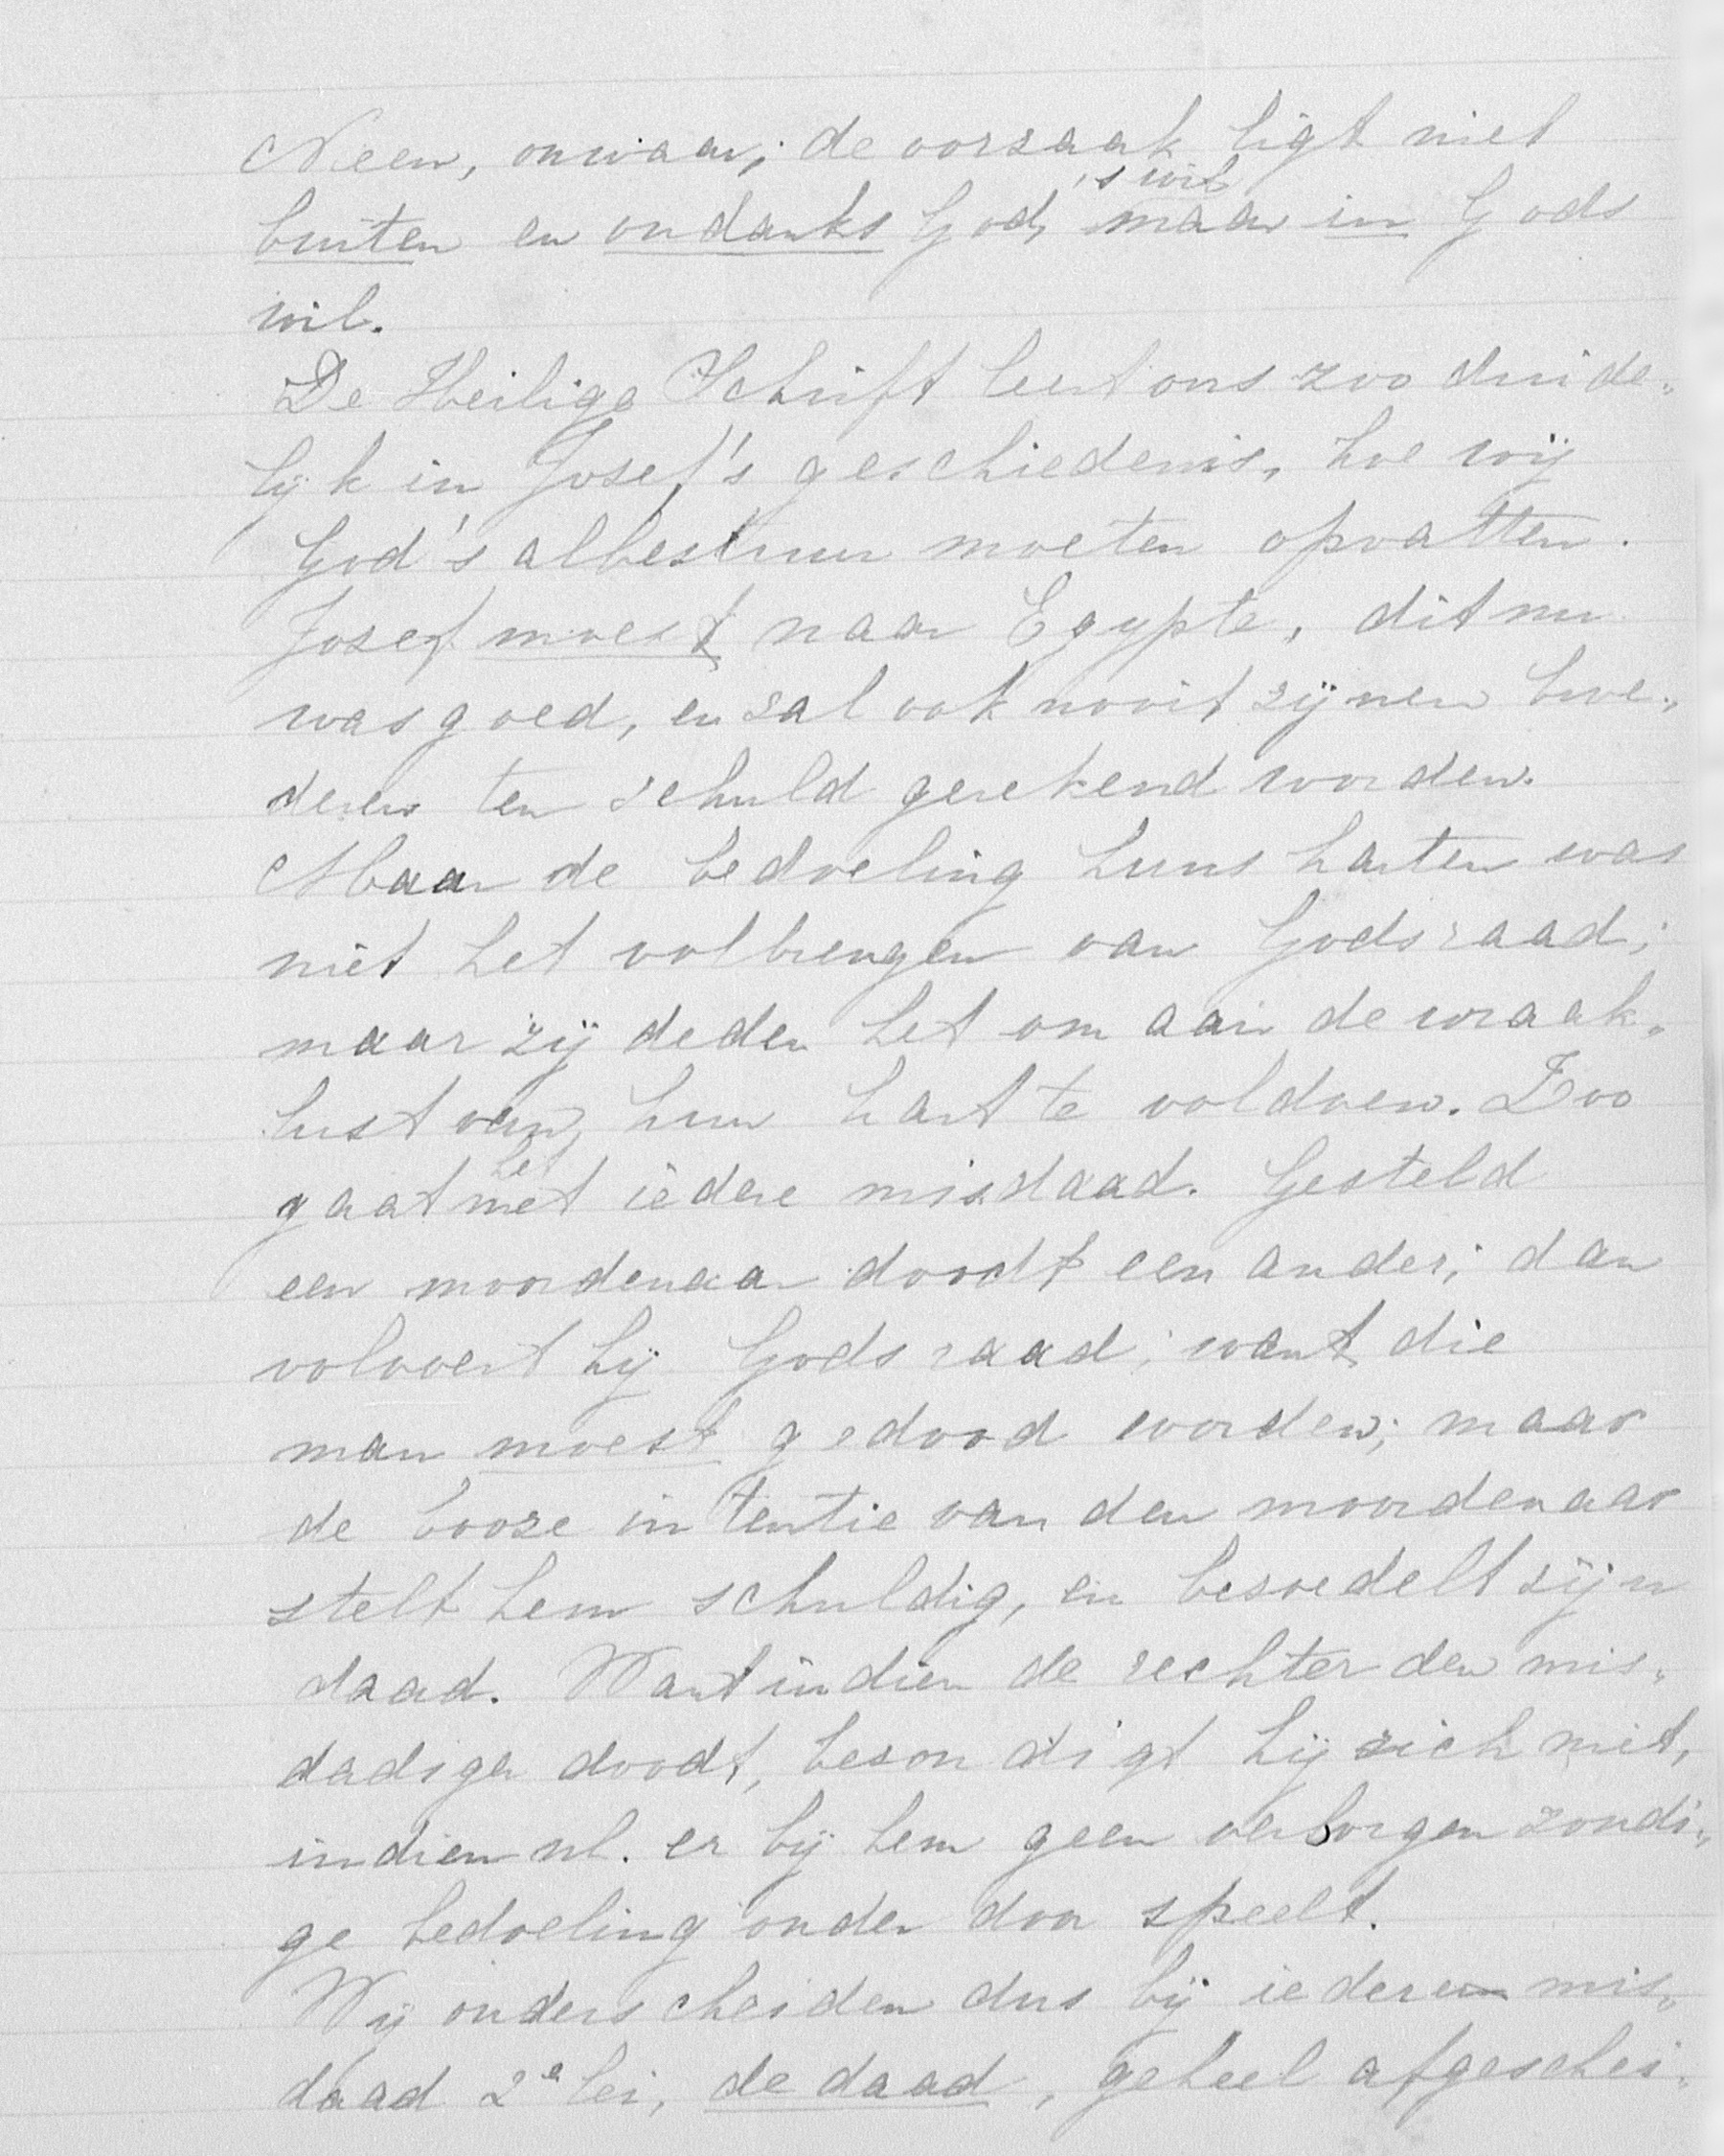 Neen, onwaar; de oorzaak ligt niet
buiten en ondanks God's wil maar in Gods
wil.
De Heilige Schrift leert ons zoo duide„
lijk in Josef's geschiedenis, hoe wij
God's albestuur moeten opvatten.
Josef moest naar Egypte, dit nu
was goed, en zal ook nooit zijnen broe„
deren ten schuld gerekend worden.
Maar de bedoeling huns harten was
niet het volbrengen van Gods raad;
maar zij deden het om aan de wraak„
lust van hun hart te voldoen. Zoo
gaat het met iedere misdaad. Gesteld
een moordenaar doodt een ander; dan
volvoert hij Gods raad; want die
man moest gedood worden; maar
de booze intentie van den moordenaar
stelt hem schuldig, en besoedelt zijn
daad. Want indien de rechter den mis„
dadiger doodt, bezondigt hij zich niet,
indien nl. er bij hem geen verborgen zondi„
ge bedoeling onder door speelt.
Wij onderscheiden dus bij iedere mis„
daad 2e lei, de daad, geheel afgeschei„